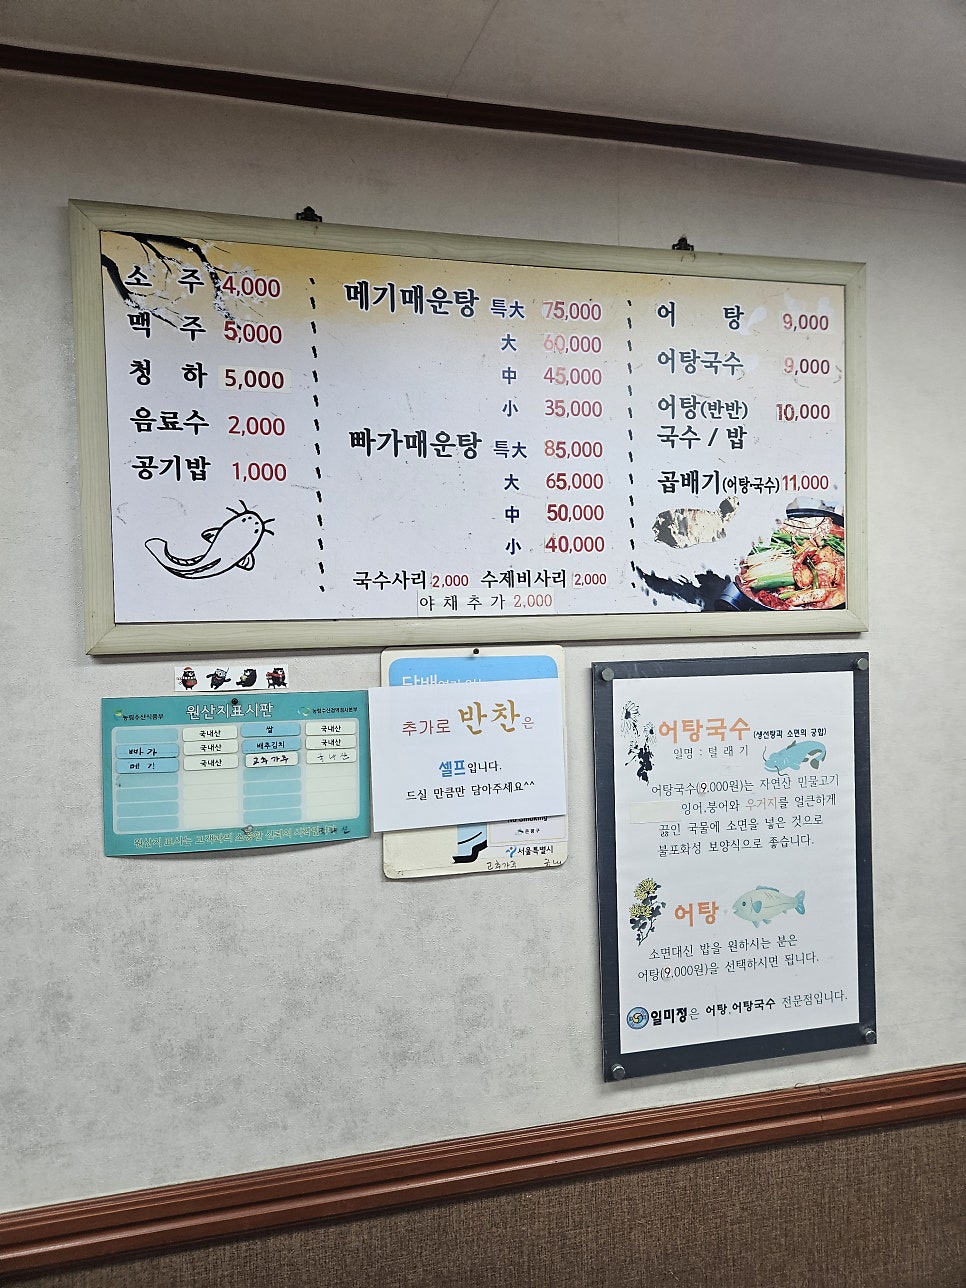 소 주 4,000
맥 주 5,000
청 하 5,000
음료수 2,000
공기밥 1,000
메기매운탕 特大 75,000
大 60,000
中 45,000
小 35,000
빠가매운탕 特大 85,000
大 65,000
中 50,000
小 40,000
국수사리 2,000 수제비사리 2,000
야채추가 2,000
어 탕 9,000
어탕국수 9,000
어탕(반반) 10,000
국수 / 밥
곱배기(어탕국수) 11,000
농림수산식품부 원산지표시판
국내산 쌀 국내산
빠가 국내산 배추김치 국내산
메기 국내산 고추가루 국내산
원산지 표시는 고객과의 소중한
추가로 반찬은
셀프입니다.
드실 만큼만 담아주세요^^
No Smoking
은평구
서울특별시
고추가루 국내
어탕국수 (생선탕과 소면의 궁합)
일명 : 털래기
어탕국수(9,000원)는 자연산 민물고기
잉어,붕어와 우거지를 얼큰하게
끓인 국물에 소면을 넣은 것으로
불포화성 보양식으로 좋습니다.
어탕
소면대신 밥을 원하시는 분은
어탕(9,000원)을 선택하시면 됩니다.
일미정은 어탕,어탕국수 전문점입니다.